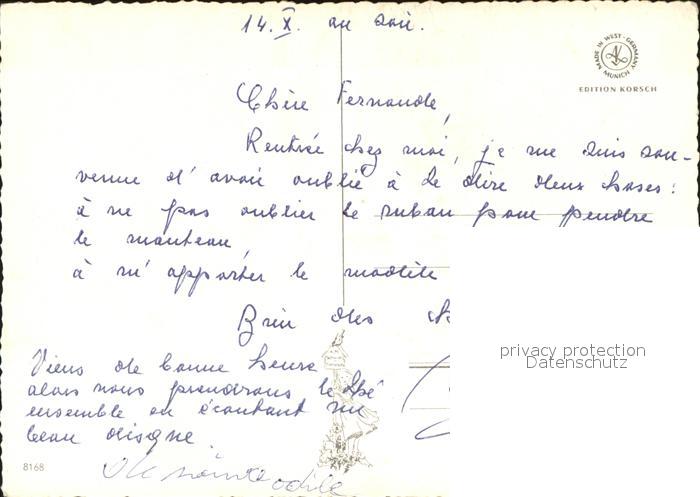 14. X. au soir.
MADE IN WEST-GERMANY
MUNICH
EDITION KORSCH
Chère Fernande,
Rentrée chez moi, je me suis sou-
venue d'avoir oublié à te dire deux choses:
à ne pas oublier le ruban pour pendre
le manteau,
à m'apporter le modèle
Bien des
privacy protection
Datenschutz
Viens de bonne heure
alors nous prendrons le thé
ensemble en écoutant un
beau disque.
8168
de sainte odile